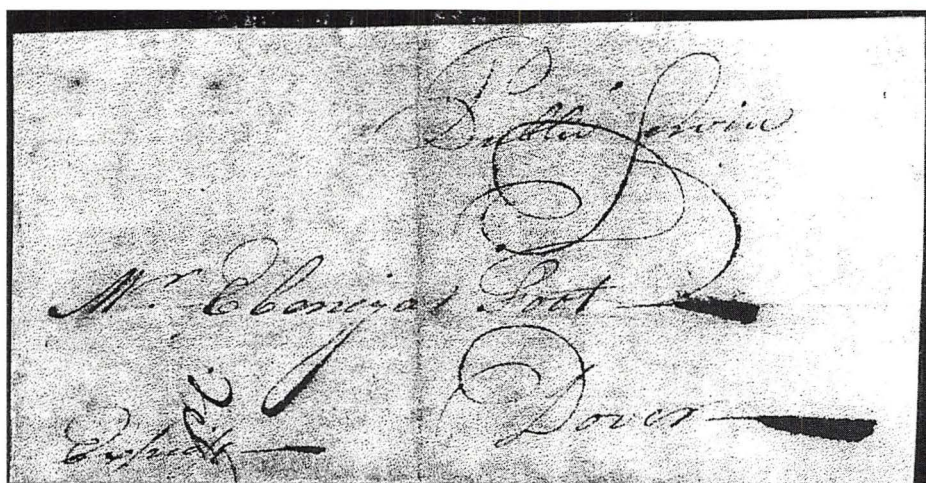 Public Service
Mr. Ebenezar Foot
Dover
Express